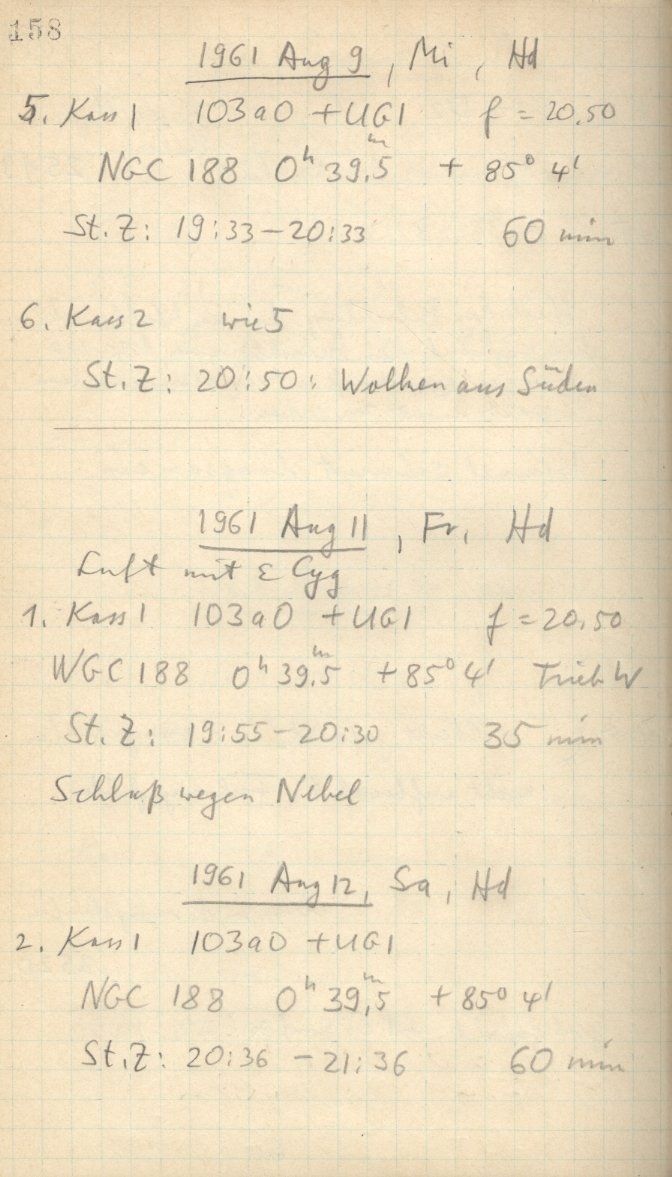 158
1961 Aug 9, Mi, Hd
5. Kass 1 103a0 + UG1 f = 20,50
NGC 188 0h 39,5m + 85° 4'
St.Z: 19:33 – 20:33 60 min
6. Kass 2 wie 5
St.Z: 20:50: Wolken aus Süden
1961 Aug 11, Fr, Hd
Luft mit ε Cyg
1. Kass 1 103a0 + UG1 f = 20,50
WGC 188 0h 39,5m + 85° 4' Trieb W
St.Z: 19:55 – 20:30 35 min
Schluß wegen Nebel
1961 Aug 12, Sa, Hd
2. Kass 1 103a0 + UG1
NGC 188 0h 39,5m + 85° 4'
St.Z: 20:36 – 21:36 60 min